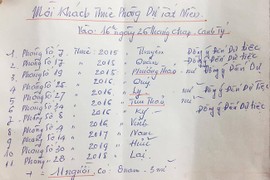 Mời Khách Thuê Phòng Dự Tất Niên
Vào: 16h ngày 26 tháng Chạp - Canh Tý
1 - Phòng Số 7 Thuê: 2015 Thuyền Đồng ý Đến Dự tiệc
2 - Phòng Số 19 2015 Quân
3 - Phòng Số 17 2015 Phương Thảo nữ Đồng ý Đến Dự
4 - Phòng Số 24 2016 Quang
5 - Phòng Số 26 2016 Ly nữ Đồng ý Đến Dự tiệc
6 - Phòng Số 27 2016 Tâm nữ Đồng ý Đến Dự tiệc
7 - Phòng Số 8 2016 Kỷ
8 - Phòng Số 4 2016 Vinh
9 - Phòng Số 14 2017 Nam
10 - Phòng Số 30 2019 Huế
11 - Phòng Số 28 2018 Lai
11 người. Có 8 nam - 3 nữ